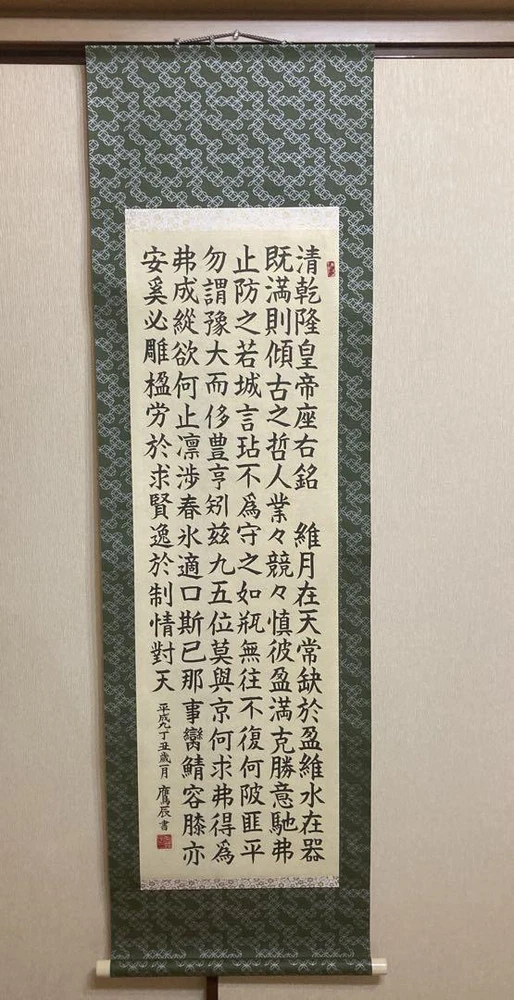 清乾隆皇帝座右銘　維月在天常缺於盈維水在器
既満則傾古之哲人業々競々慎彼盈満克勝意馳弗
止防之若城言玷不爲守之如瓶無往不復何陂匪平
勿謂豫大而侈豊亨矧兹九五位莫與京何求弗得為
弗成縦欲何止凛渉春氷適口斯已那事鸞鯖容膝亦
安奚必雕楹労於求賢逸於制情對天
平成九丁丑歳一月　鷹辰書